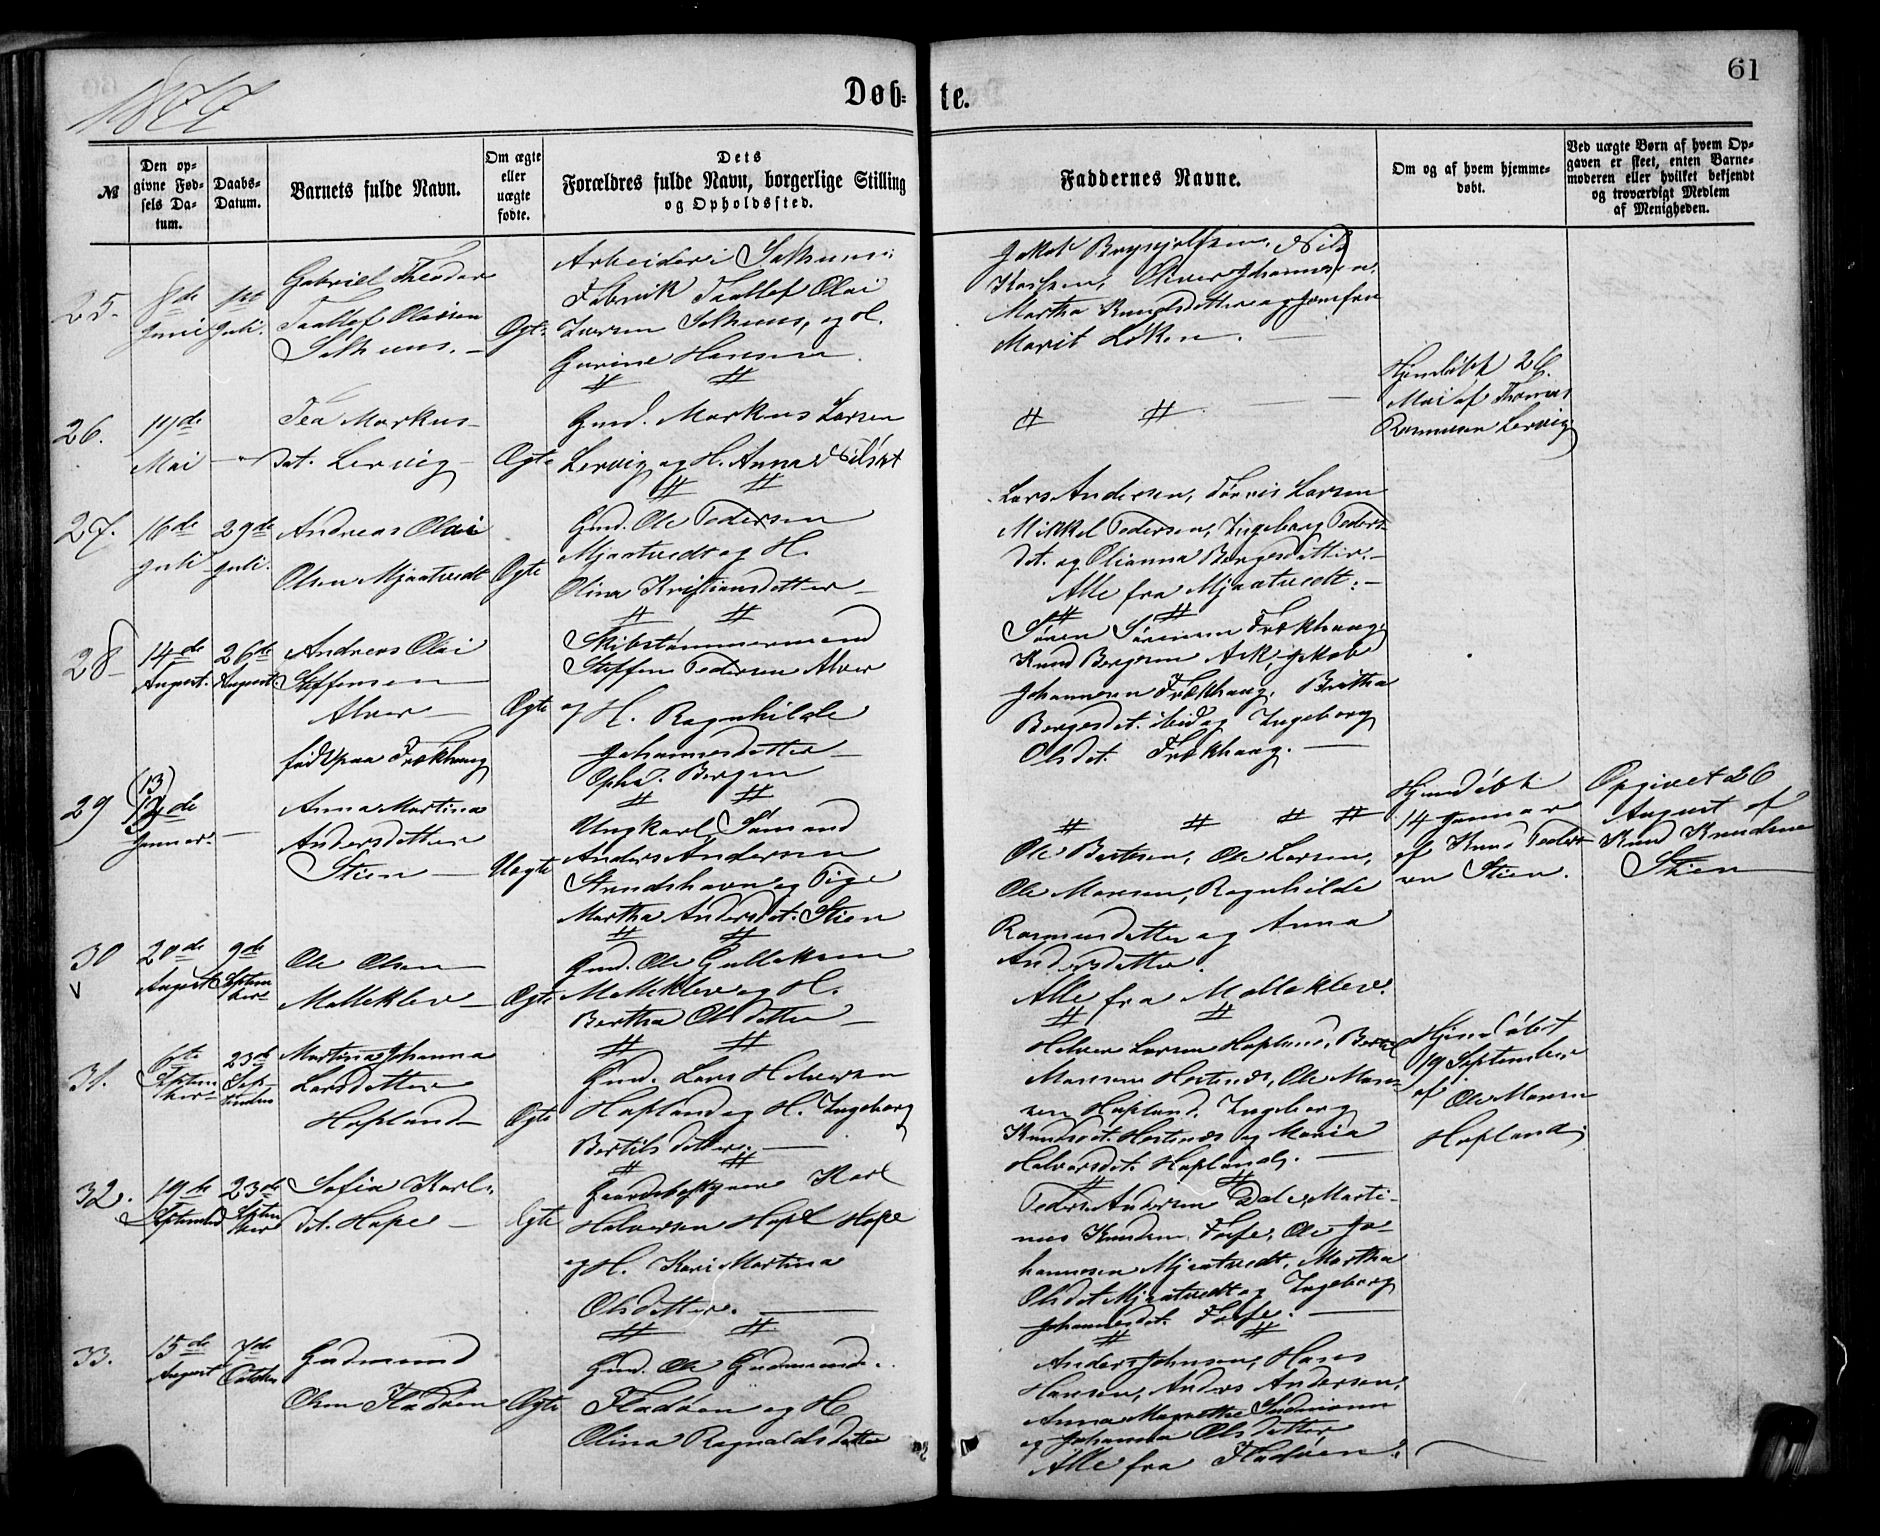 61
1877
Døb=te.
№
Den op=
givne Fød=
sels Da=
tum.
Daabs=
Datum.
Barnets fulde Navn.
Om ægte
eller
uægte
fødte.
Dets
Forældres fulde Navn, borgerlige Stilling
og Opholdssted.
Faddernes Navne.
Om og af hvem hjemme=
døbt.
Ved uægte Børn af hvem Op=
gaven er skeet, enten Barne=
moderen eller hvilket bekjendt
og troværdigt Medlem
af Menigheden.
25.
8de
Juni
1ste
Juli.
Gabriel Theodor
Taallef Olaisen
Salhuus. –
Ægte
Arbeider i Salhuus:
Fabrik Taallef Olai
Iversen Salhuus, og H.
Gurine Hansen.
Jakob Brynjelfsen, Nils
Karlsen, Oliver Johannesen,
Martha Knudsdatter og Jomfru
Marit Løken. –
26.
19de
Mai
Tea Markus-
dat. Lervig –
Ægte
Gmd. Markus Larsen
Lervig og H. Anna Nilsdat
Hjemdøbt 26.
Mai af Thomas
Rasmussen Lervig
27.
16de
Juli
29de
Juli.
Andreas Olai
Olsen Mjaatvedt
Ægte
Gmd. Ole Pedersen
Mjaatvedt og H.
Olina Kristiansdatter –
Lars Andersen, Larsen
Mikkel Pedersen, Ingeborg Peders-
dt. og Olianna Børgesdatter. –
Alle fra Mjaatvedt. –
28
14de
August.
26de
August.
Andreas Olai
Steffensen
Alver –
født paa Frækhaug
Ægte
Skibstømmermand
Steffen Pedersen Alver
og H. Ragnhilde
Johannesdatter –
Opha. Bergen
Søren Sørensen Frækhaug,
Knud Børgesen Ask, Jakob
Johannesen Frækhaug, Britha
Børgesdat. ibid og Ingeborg
Olsdat. Frækhaug. –
29
(13)
12de
Januar.
Anna Martina
Andersdatter
Stien –
Uægte
Ungkarl, Sømand
Anders Andersen
Strandshavn og Pige
Martha Andersdat. Stien
Hjemdøbt
14 Januar
af Knud Peder-
sen Stien.
Opgivet 26
August af
Knud Knudsen
Stien
30
20de
August
9de
Septem
ber
Ole Olsen
Mælleklev –
Ægte
Gmd. Ole Gulleksen
Mælleklev og H.
Bertha Olsdatter –
Ole Bertesen, Ole Larsen,
Ole Monsen, Ragnhilde
Rasmusdatter og Anna
Andersdatter.
Alle fra Mælleklev.
31.
6te
Septem
ber
23de
Sep-
tember
Martina Johanna
Larsdatter
Hopland
Ægte
Gmd. Lars Halvorsen
Hopland og H. Ingeborg
Bertilsdatter. –
Halvor Larsen Hopland, Bertel
Monsen Hestnes, Ole Mon-
sen Hopland, Ingeborg
Knudsdt. Hestnes og Maria
Halvorsdt. Hopland. –
Hjemdøbt
19 September
af Ole Monsen
Hopland.
32.
19de
September
23de
Septem
ber
Sofia Karl-
dt. Hope –
Ægte
Gaardsbestyrer Karl
Halvorsen Hope
og H. Kari Martina
Olsdatter. –
Peder Andersen Dale, Marti-
nus Knudsen Fosse, Ole Jo-
hannesen Mjaatvedt, Martha
Olsdt Mjaatvedt og Ingeborg
Johannesdt. Fosse. –
33.
15de
August
7de
October
Gudmund
Olsen Fladøen
Ægte
Gmd. Ole Gudmunds.
Fladøen og H
Olina Ragnaldsdatter
Anders Johnsen, Hans
Hansen, Anders Andersen,
Anna Margrethe
og Johanna Olsdatter
Alle fra Fladøen.